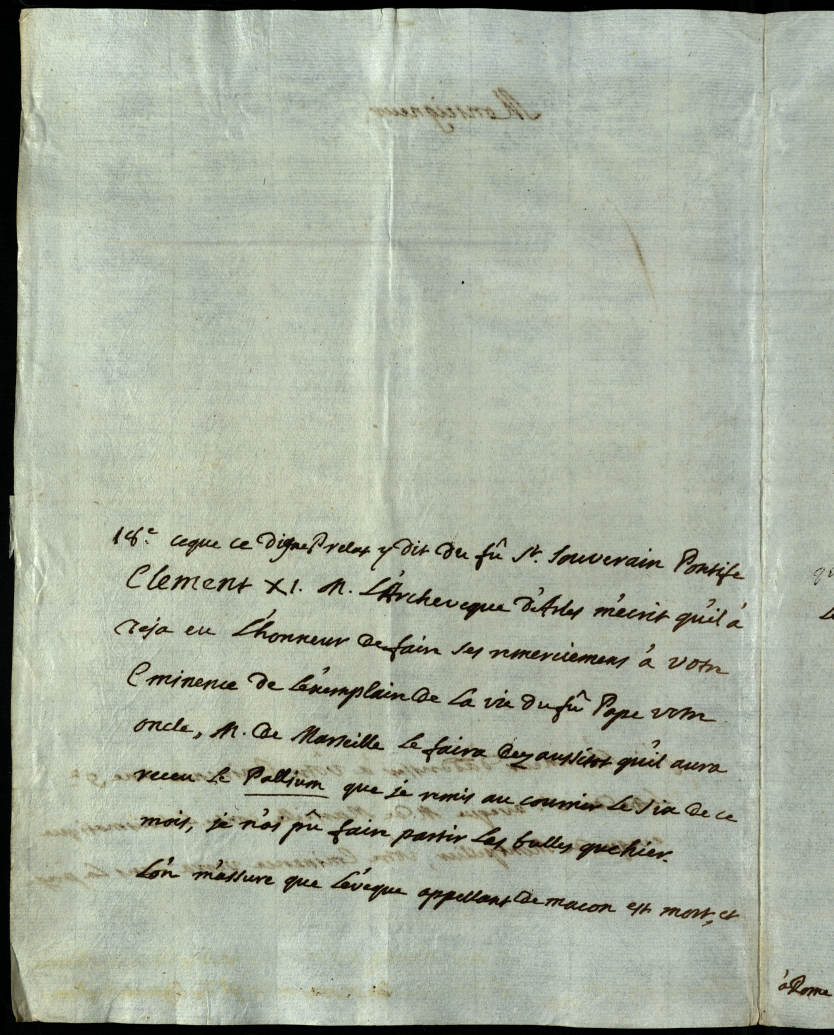 18.e ceque ce digne Prelat y dit du fû St. Souverain Pontife
Clement XI. M. L'Archeveque d'Arles m'ecrit qu'il à
deja eu L'honneur de faire ses remerciemens à votre
Eminence de L'exemplaire de La vie du fû Pape votre
oncle, M. de Marseille Le faira dez aussitost qu'il aura
receu Le Pallium que je remis au courrier Le six de ce
mois, je n'ai pû faire partir Les bulles que hier.
L'on m'assure que L'évêque appellant de macon est mort, et
à Rome